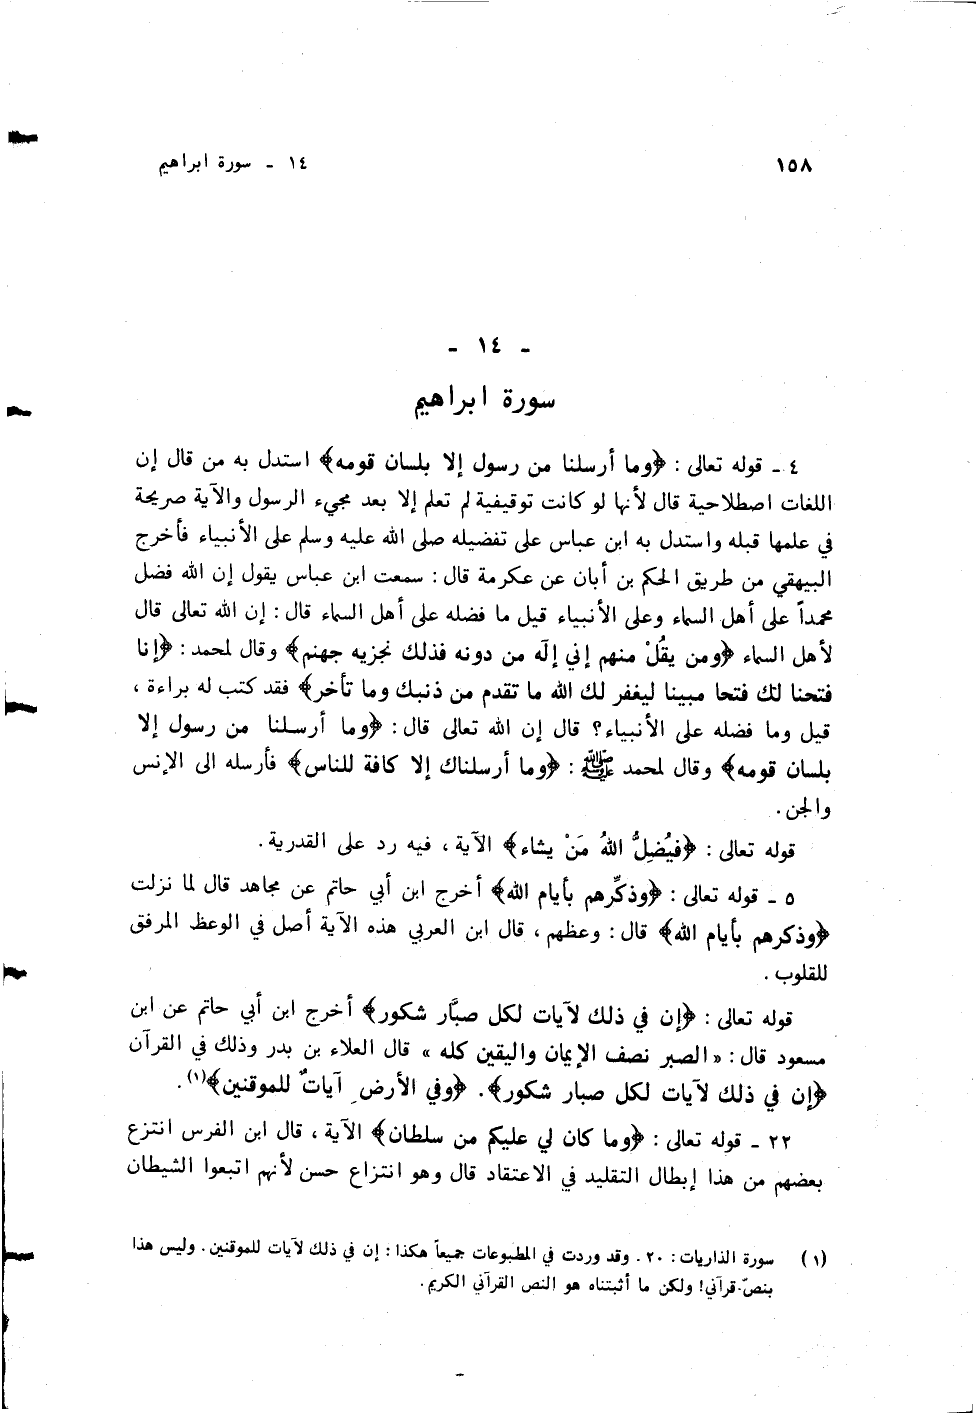 ١٥٨
١٤ - سورة ابراهيم
- ١٤ -
سورة ابراهيم
٤ - قوله تعالى : ﴿وما أرسلنا من رسول إلا بلسان قومه﴾ استدل به من قال إن
اللغات اصطلاحية قال لأنها لو كانت توقيفية لم تعلم إلا بعد مجيء الرسول والآية صريحة
في علمها قبله واستدل به ابن عباس على تفضيله صلى الله عليه وسلم على الأنبياء فأخرج
البيهقي من طريق الحكم بن أبان عن عكرمة قال : سمعت ابن عباس يقول إن الله فضل
محمداً على أهل السماء وعلى الأنبياء قيل ما فضله على أهل السماء قال : إن الله تعالى قال
لأهل السماء ﴿ومن يقُلْ منهم إني إلَه من دونه فذلك نجزيه جهنم﴾ وقال لمحمد : ﴿إنا
فتحنا لك فتحا مبينا ليغفر لك الله ما تقدم من ذنبك وما تأخر﴾ فقد كتب له براءة ،
قيل وما فضله على الأنبياء؟ قال إن الله تعالى قال : ﴿وما أرسلنا من رسول إلا
بلسان قومه﴾ وقال لمحمد ﷺ : ﴿وما أرسلناك إلا كافة للناس﴾ فأرسله الى الإنس
والجن .
قوله تعالى : ﴿فيُضِلُّ اللهُ مَنْ يشاء﴾ الآية ، فيه رد على القدرية .
٥ - قوله تعالى : ﴿وذكِّرهم بأيام الله﴾ أخرج ابن أبي حاتم عن مجاهد قال لما نزلت
﴿وذكرهم بأيام الله﴾ قال : وعظهم ، قال ابن العربي هذه الآية أصل في الوعظ المرفق
للقلوب .
قوله تعالى : ﴿إن في ذلك لآيات لكل صبَّار شكور﴾ أخرج ابن أبي حاتم عن ابن
مسعود قال : « الصبر نصف الإيمان واليقين كله » قال العلاء بن بدر وذلك في القرآن
﴿إن في ذلك لآيات لكل صبار شكور﴾. ﴿وفي الأرضِ آياتٌ للموقنين﴾(١) .
٢٢ - قوله تعالى : ﴿وما كان لي عليكم من سلطان﴾ الآية ، قال ابن الفرس انتزع
بعضهم من هذا إبطال التقليد في الاعتقاد قال وهو انتزاع حسن لأنهم اتبعوا الشيطان
(١) سورة الذاريات : ٢٠ . وقد وردت في المطبوعات جميعاً هكذا : إن في ذلك لآيات للموقنين . وليس هذا
بنصّ قرآني! ولكن ما أثبتناه هو النص القرآني الكريم .